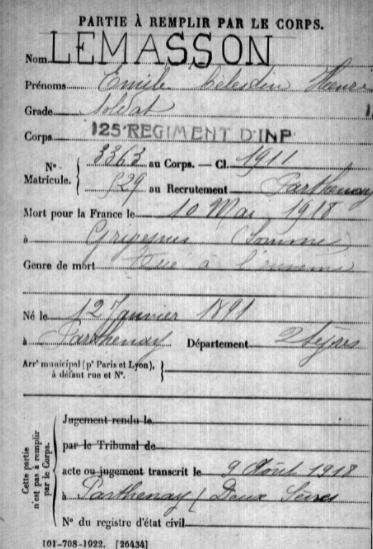 PARTIE À REMPLIR PAR LE CORPS.
Nom LEMASSON
Prénoms Emile Célestin Henri
Grade Soldat
Corps 125 REGIMENT D'INF
N° Matricule. { 3363 au Corps. — Cl. 1911
929 au Recrutement Parthenay
Mort pour la France le 10 Mai 1918
à (Somme)
Genre de mort Tué à l'ennemi
Né le 12 Janvier 1891
à Parthenay Département 2 Sèvres
Arrt municipal (pr Paris et Lyon), à défaut rue et N°. }
Cette partie n'est pas à remplir par le Corps.
Jugement rendu le
par le Tribunal de
acte ou jugement transcrit le 9 Août 1918
à Parthenay (Deux Sèvres
N° du registre d'état civil
101-708-1922. [26434]